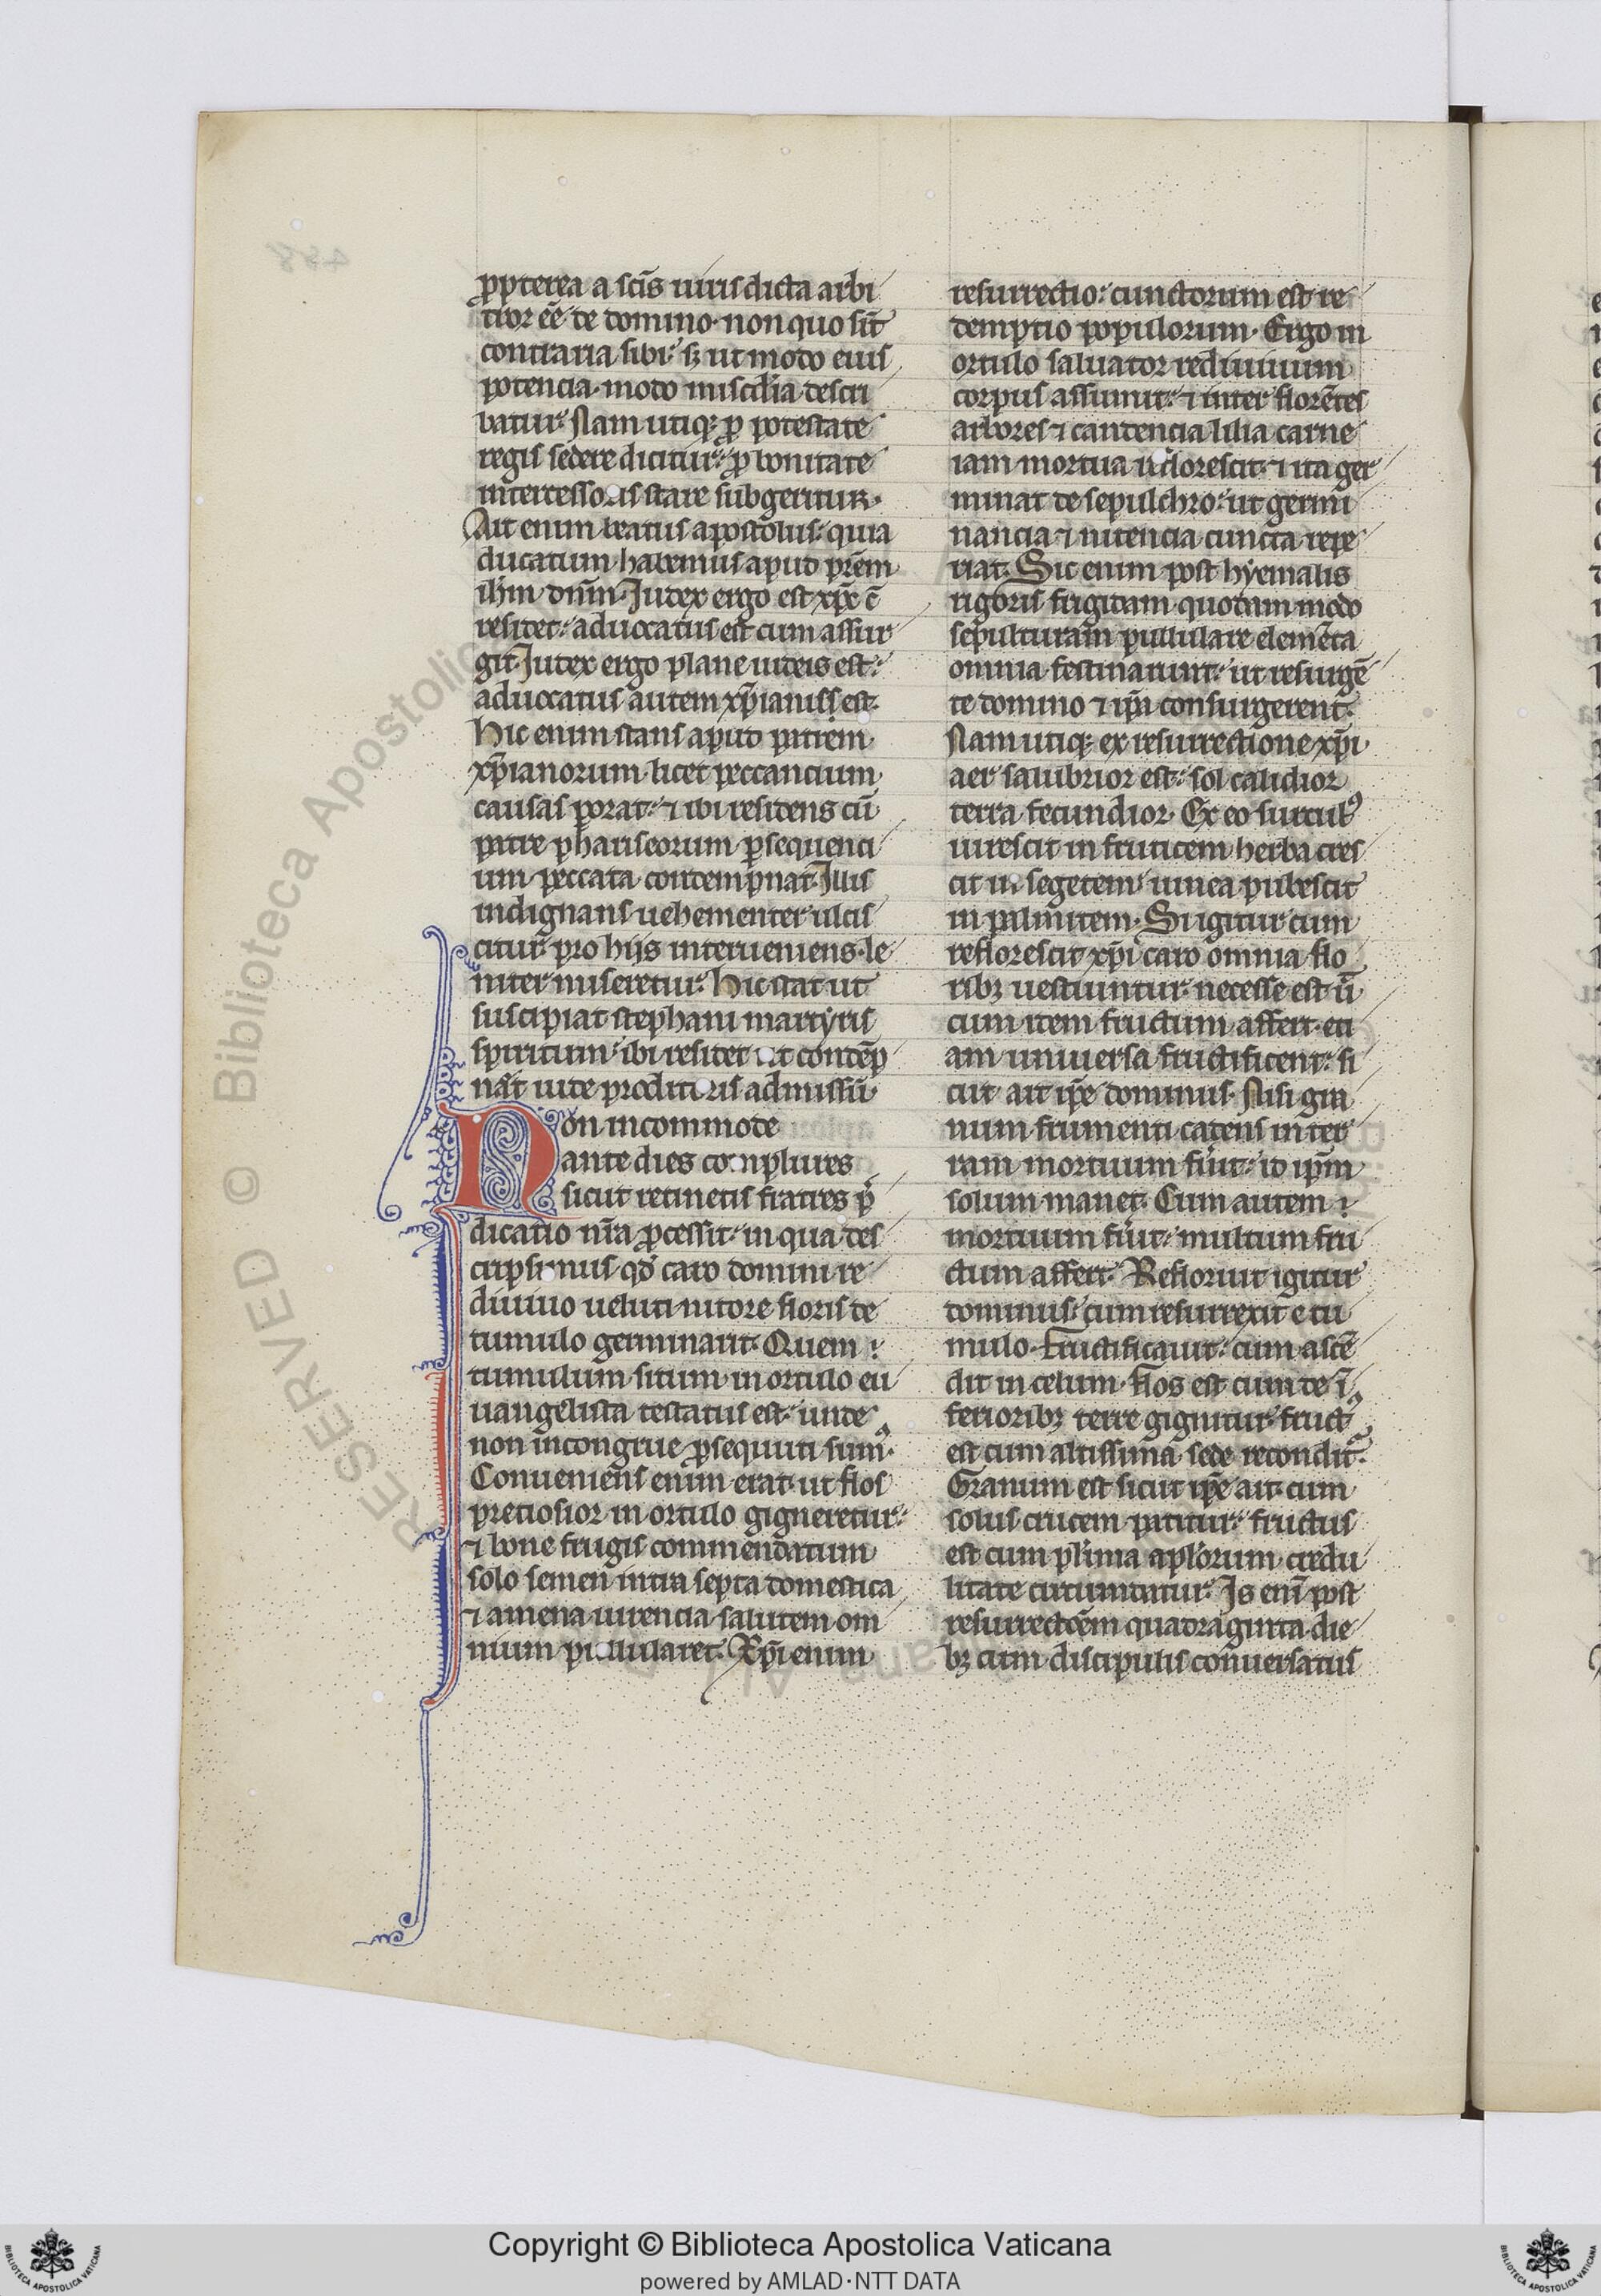 ꝓpterea a scīs uiris dicta arbi
tror eē de domino· non quo sīt
contraria sibi· sꝫ ut modo eius
potencia· modo misc̄dia descri
batur· Nam utiqꝫ ꝓ potestate
regis sedere dicitur· ꝓ bonitate
intercessoris stare subgeritur·
Ait enim beatus apostolus· quia
ducatum habemus apud pr̄em
ih̄m dn̄m· Iudex ergo est xp̄c c̄
residet· aduocatus est cum assur
git· Iudex ergo plane iudeis est·
aduocatus autem xp̄ianis est·
Hic enim stans apud patrem
xp̄ianorum licet peccancium
causas ꝓorat· ⁊ ibi residens cū
patre phariseorum ꝑsequenci
um peccata contempnat· Illis
indignans uehementer ulcis
citur· pro hijs interueniens· le
niter miseretur· Hic stat ut
suscipiat stephani martyris
spiritum· ibi residet ut contēp
nat iude proditoris admissū·
Non incommode
ante dies complures
sicut retinetis fratres p̄
dicatio nr̄a ꝓcessit· in qua des
cripsimus qd̄ caro domini re
diuiuo ueluti nitore floris de
tumulo germinarit· Quem
tumulum situm in ortulo eu
uangelista testatus est· unde
non incongrue ꝓsequuti sumꝰ·
Conueniens enim erat· ut flos
preciosior in ortulo gigneretur·
⁊ bone frugis commendatum
solo semen intra septa domestica
⁊ amena uirencia salutem om
nium pullularet· Xp̄i enim
resurrectio· cunctorum est re
demptio populorum· Ergo in
ortulo saluator rediuiuum
corpus assumit· ⁊ inter florētes
arbores ⁊ candencia lilia carne
iam mortua reflorescit· ⁊ ita ger
minat de sepulchro· ut germi
nancia ⁊ nitencia cuncta repe
riat· Sic enim post hyemalis
rigoris frigidam quodam modo
sepulturam pullulare elemēta
omnia festinarunt· ut resurgē
te domino ⁊ ip̄a consurgerent·
Nam utiqꝫ ex resurrectione xp̄i
aer salubrior est· sol calidior
terra fecundior· Ex eo surculꝰ
uirescit in fruticem herba cres
cit in segetem· uinea pubescit
in palmitem· Si igitur cum
reflorescit xp̄i caro omnia flo
ribꝫ uestiuntur· necesse est ū
cum idem fructum affert· eti
am uniuersa fructificent· si
cut ait ip̄e dominus· Nisi gra
num frumenti cadens in ter
ram mortuum fuerit· id ip̄m
solum manet· Cum autem
mortuum fuerit· multum fru
ctum affert· Refloruit igitur
dominus· cum resurrexit e tu
mulo· Fructificauit· cum ascē
dit in celum· Flos est cum de ī
ferioribꝫ terre gignitur· fructꝰ
est cum altissima sede recondit᷑·
Granum est sicut ip̄e ait· cum
solus crucem patitur· fructus
est cum plīma apl̄orum credu
litate circumdatur· Is enī post
resurrectōem quadraginta die
bꝫ cum discipulis conuersatus
RESERVED © Biblioteca Apostolica
Copyright © Biblioteca Apostolica Vaticana
powered by AMLAD·NTT DATA